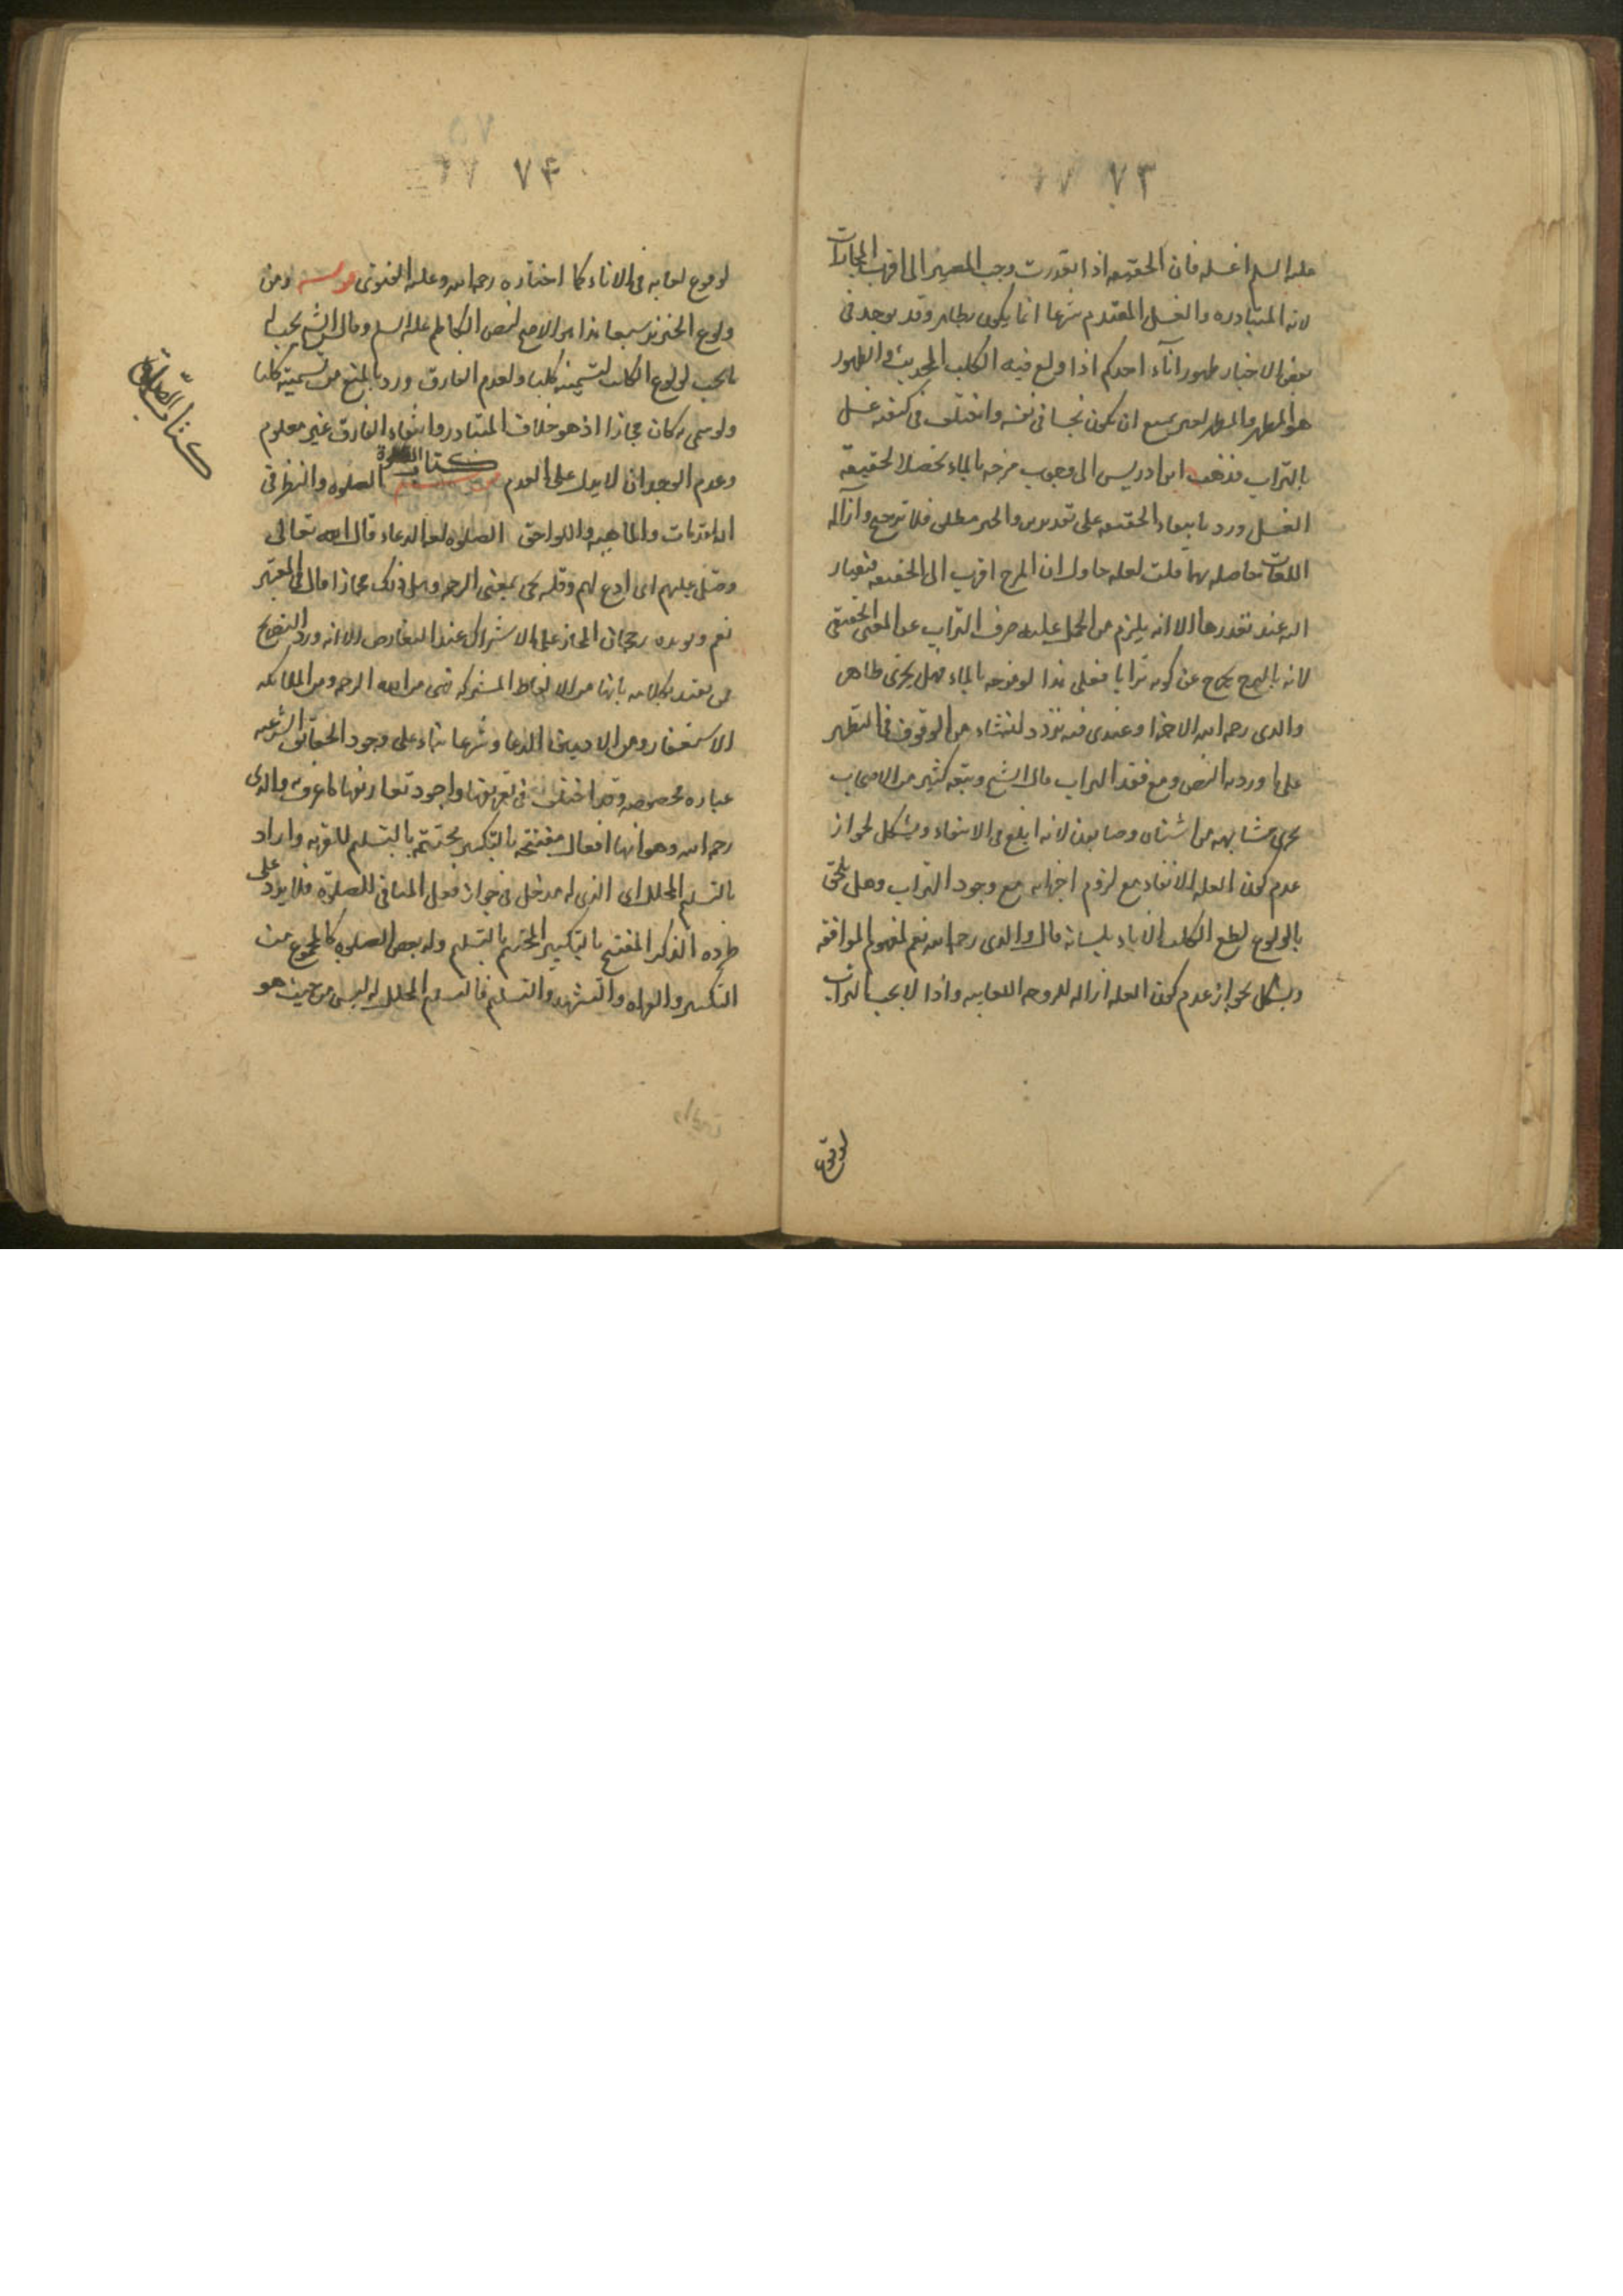 ٧٣
عليه السلم اغسله فان الحقيقه اذا تعذرت وجب المصير الى اقرب المجازات
لانه المتبادره والغسل المتقدم شرعا انما يكون بطاهر وقد يوجد فى
بعض الاخبار طهور اناء احدكم اذا ولغ فيه الكلب الحديث والطهور
هو المطهر والمطهر لغيره يمتنع ان يكون نجسا فى نفسه واختلف فى كيفيه غسل
بالتراب فذهب ابن ادريس الى وجوب مزجه بالماء تحصيلا لحقيقه
الغسل ورد بانتفاء الحقيقه على تقديرين والخبر مطلق فلا ترجيح وازاله
اللعاب حاصله بهما قلت لعله حاول ان المزج اقرب الى الحقيقه فيصار
اليه عند تعذرها الا انه يلزم من الحمل عليه صرف التراب عن المعنى الحقيقى
لانه بالمزج يخرج عن كونه ترابا فعلى هذا لو مزجه بالماء فهل يجزى ظاهر
والدى رحمه الله الاجزا وعندى فيه تردد لنشاء من الوقوف فى التطهير
على ما ورد به النص ومع فقد التراب قال الشيخ وتبعه كثير من الاصحاب
يجزى مشابهه من اشنان وصابون لانه ابلغ فى الانقاء ويشكل لجواز
عدم كون العله الانقاء مع لزوم اجزائه مع وجود التراب وهل يلحق
بالولوغ لطع الكلب الاناء بلسانه قال والدى رحمه الله نعم لمفهوم الموافقه
ويشكل بجواز عدم كون العله ازاله لزوجه اللعابيه واذا لا يجب التراب
لوقوع
٧٤
لوقوع لعابه فى الاناء كما اختاره رحمه الله وعليه الفتوى ومن
ولوغ الخنزير سبعا هذا هو الاصح لنص الكاظم عليه السلم وقال الشيخ يجب له
ما يجب لولوغ الكلب لتسميته كلبا ولعدم الفارق ورد بالمنع من تسميته كلبا
ولو سمى به كان مجازا اذ هو خلاف المتبادر وانتفاء الفارق غير معلوم
وعدم الوجدان لا يدل على العدم كتاب الصلوة الصلوه والنظر فى
المقدمات والماهيه واللواحق الصلوه لغه الدعاء قال الله تعالى
وصل عليهم اى ادع لهم وقد يجى بمعنى الرحمه وهل ذلك مجازا قال فى المعتبر
نعم ويويده رجحان المجاز على الاشتراك عند التعارض الا انه ورد التصريح
من يعتد بكلامه بانها من الالفاظ المشتركه فهى من الله الرحمه ومن الملائكه
الاستغفار ومن الادميين الدعا وشرعا بناء على وجود الحقائق الشرعيه
عباره مخصوصه وقد اختلف فى تعريفها واجود تعاريفها ما عرف به والدى
رحمه الله وهو انها افعال مفتتحه بالتكبير مختتمه بالتسليم للقربه واراد
بالتسليم المحلل اى الذى له مدخل فى جواز فعل المنافى للصلوة فلا يرد على
طرده الذكر المفتتح بالتكبير المختتم بالتسليم ولا بعض الصلوه كالمجموع من
التكبير والقراه والتشهد والتسليم فالتسليم المحلل له ليس من حيث هو
كتاب الصلوة